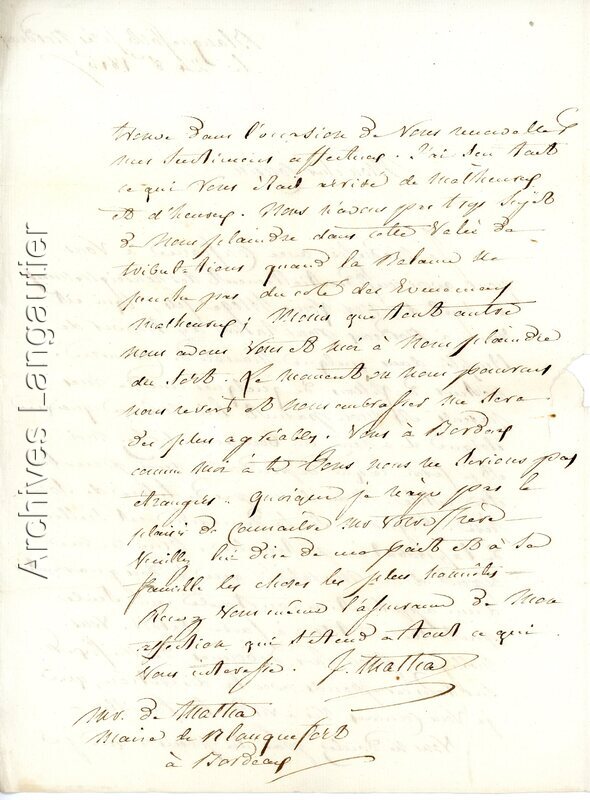 trouve dans l'occasion de vous renouveller
mes sentimens affectueux. J'ai sçu tout
ce qui vous était arrivé de malheureux
et d'heureux. Nous n'avons pas trop sujet
de nous plaindre dans cette valée de
tribulations quand la Balance ne
penche pas du coté des Evenemens
malheureux; Moins que tout autre
nous avons vous et moi à nous plaindre
du sort. Le moment où nous pourrons
nous revoir et nous embrasser me sera
des plus agréables. Vous à Bordeaux
comme moi à nous ne serions pas
étrangers. quoique je n'aye pas le
plaisir de connaitre mr votre frère
Veuillez lui dire de ma part et à sa
famille les choses les plus honnêtes
Recevez vous même l'assurance de mon
affection qui s'étend a tout ce qui
vous interesse. J. Matha
Mr. de Matha
Maire de Blanquefort
à Bordeaux
Archives Langautier